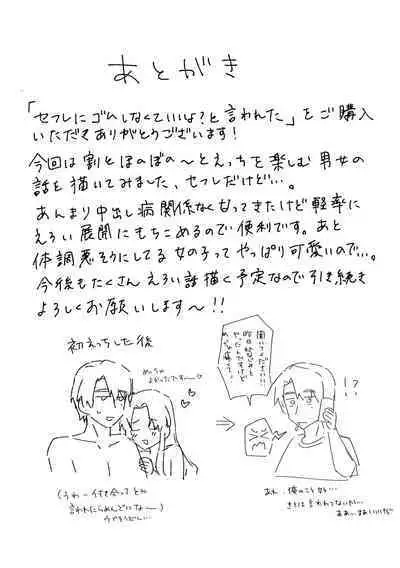 あとがき
「セフレにゴムしなくていいよ？と言われた」をご購入
いただきありがとうございます！
今回は割とほのぼの〜とえっちを楽しむ男女の
話を描いてみました、セフレだけど…。
あんまり中出し病関係なくなってきたけど軽率に
えろい展開にもちこめるので便利です。あと
体調悪そうにしてる女の子ってやっぱり可愛いので…。
今後もたくさんえろい話描く予定なので引き続き
よろしくお願いします〜！！
初えっちした後
めっちゃ
よかったです〜
聞いてください…
!?
(うわー付き合ってとか
言われたらめんどいな〜)
あれ、俺のこと好き…